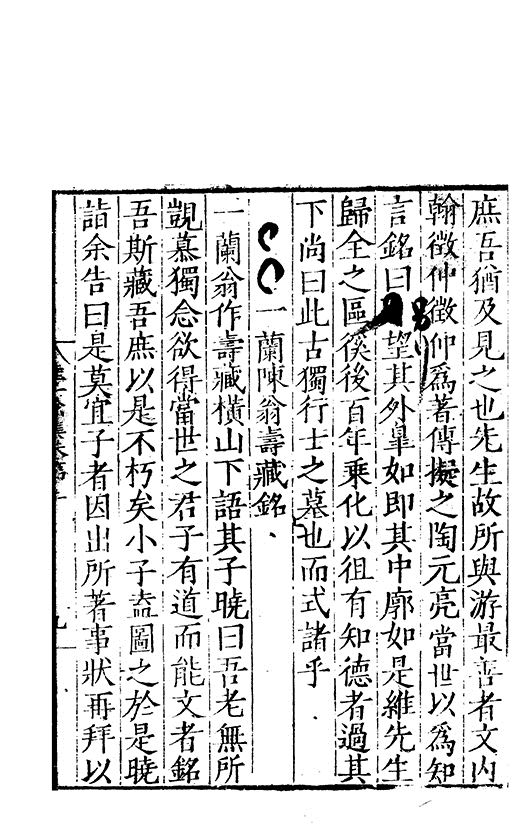 庶吾猶及見之也先生故所與游最善者文內
翰徵仲徵仲爲著傳擬之陶元亮當世以爲知
言銘曰望其外臯如即其中廓如是維先生
歸全之區徯後百年乘化以徂有知德者過其
下尚曰此古獨行士之墓也而式諸乎
一蘭陳翁壽藏銘
一蘭翁作壽藏橫山下語其子曉曰吾老無所
覬慕獨念欲得當世之君子有道而能文者銘
吾斯藏吾庶以是不朽矣小子盍圖之於是曉
詣余告曰是莫宜子者因出所著事狀再拜以